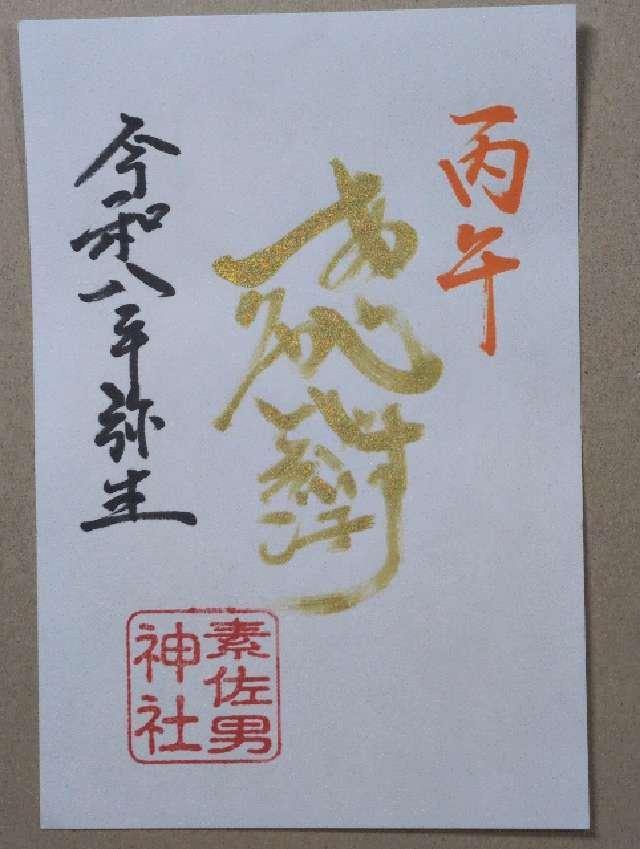 丙午
飛翔
令和八年弥生
素佐男
神社